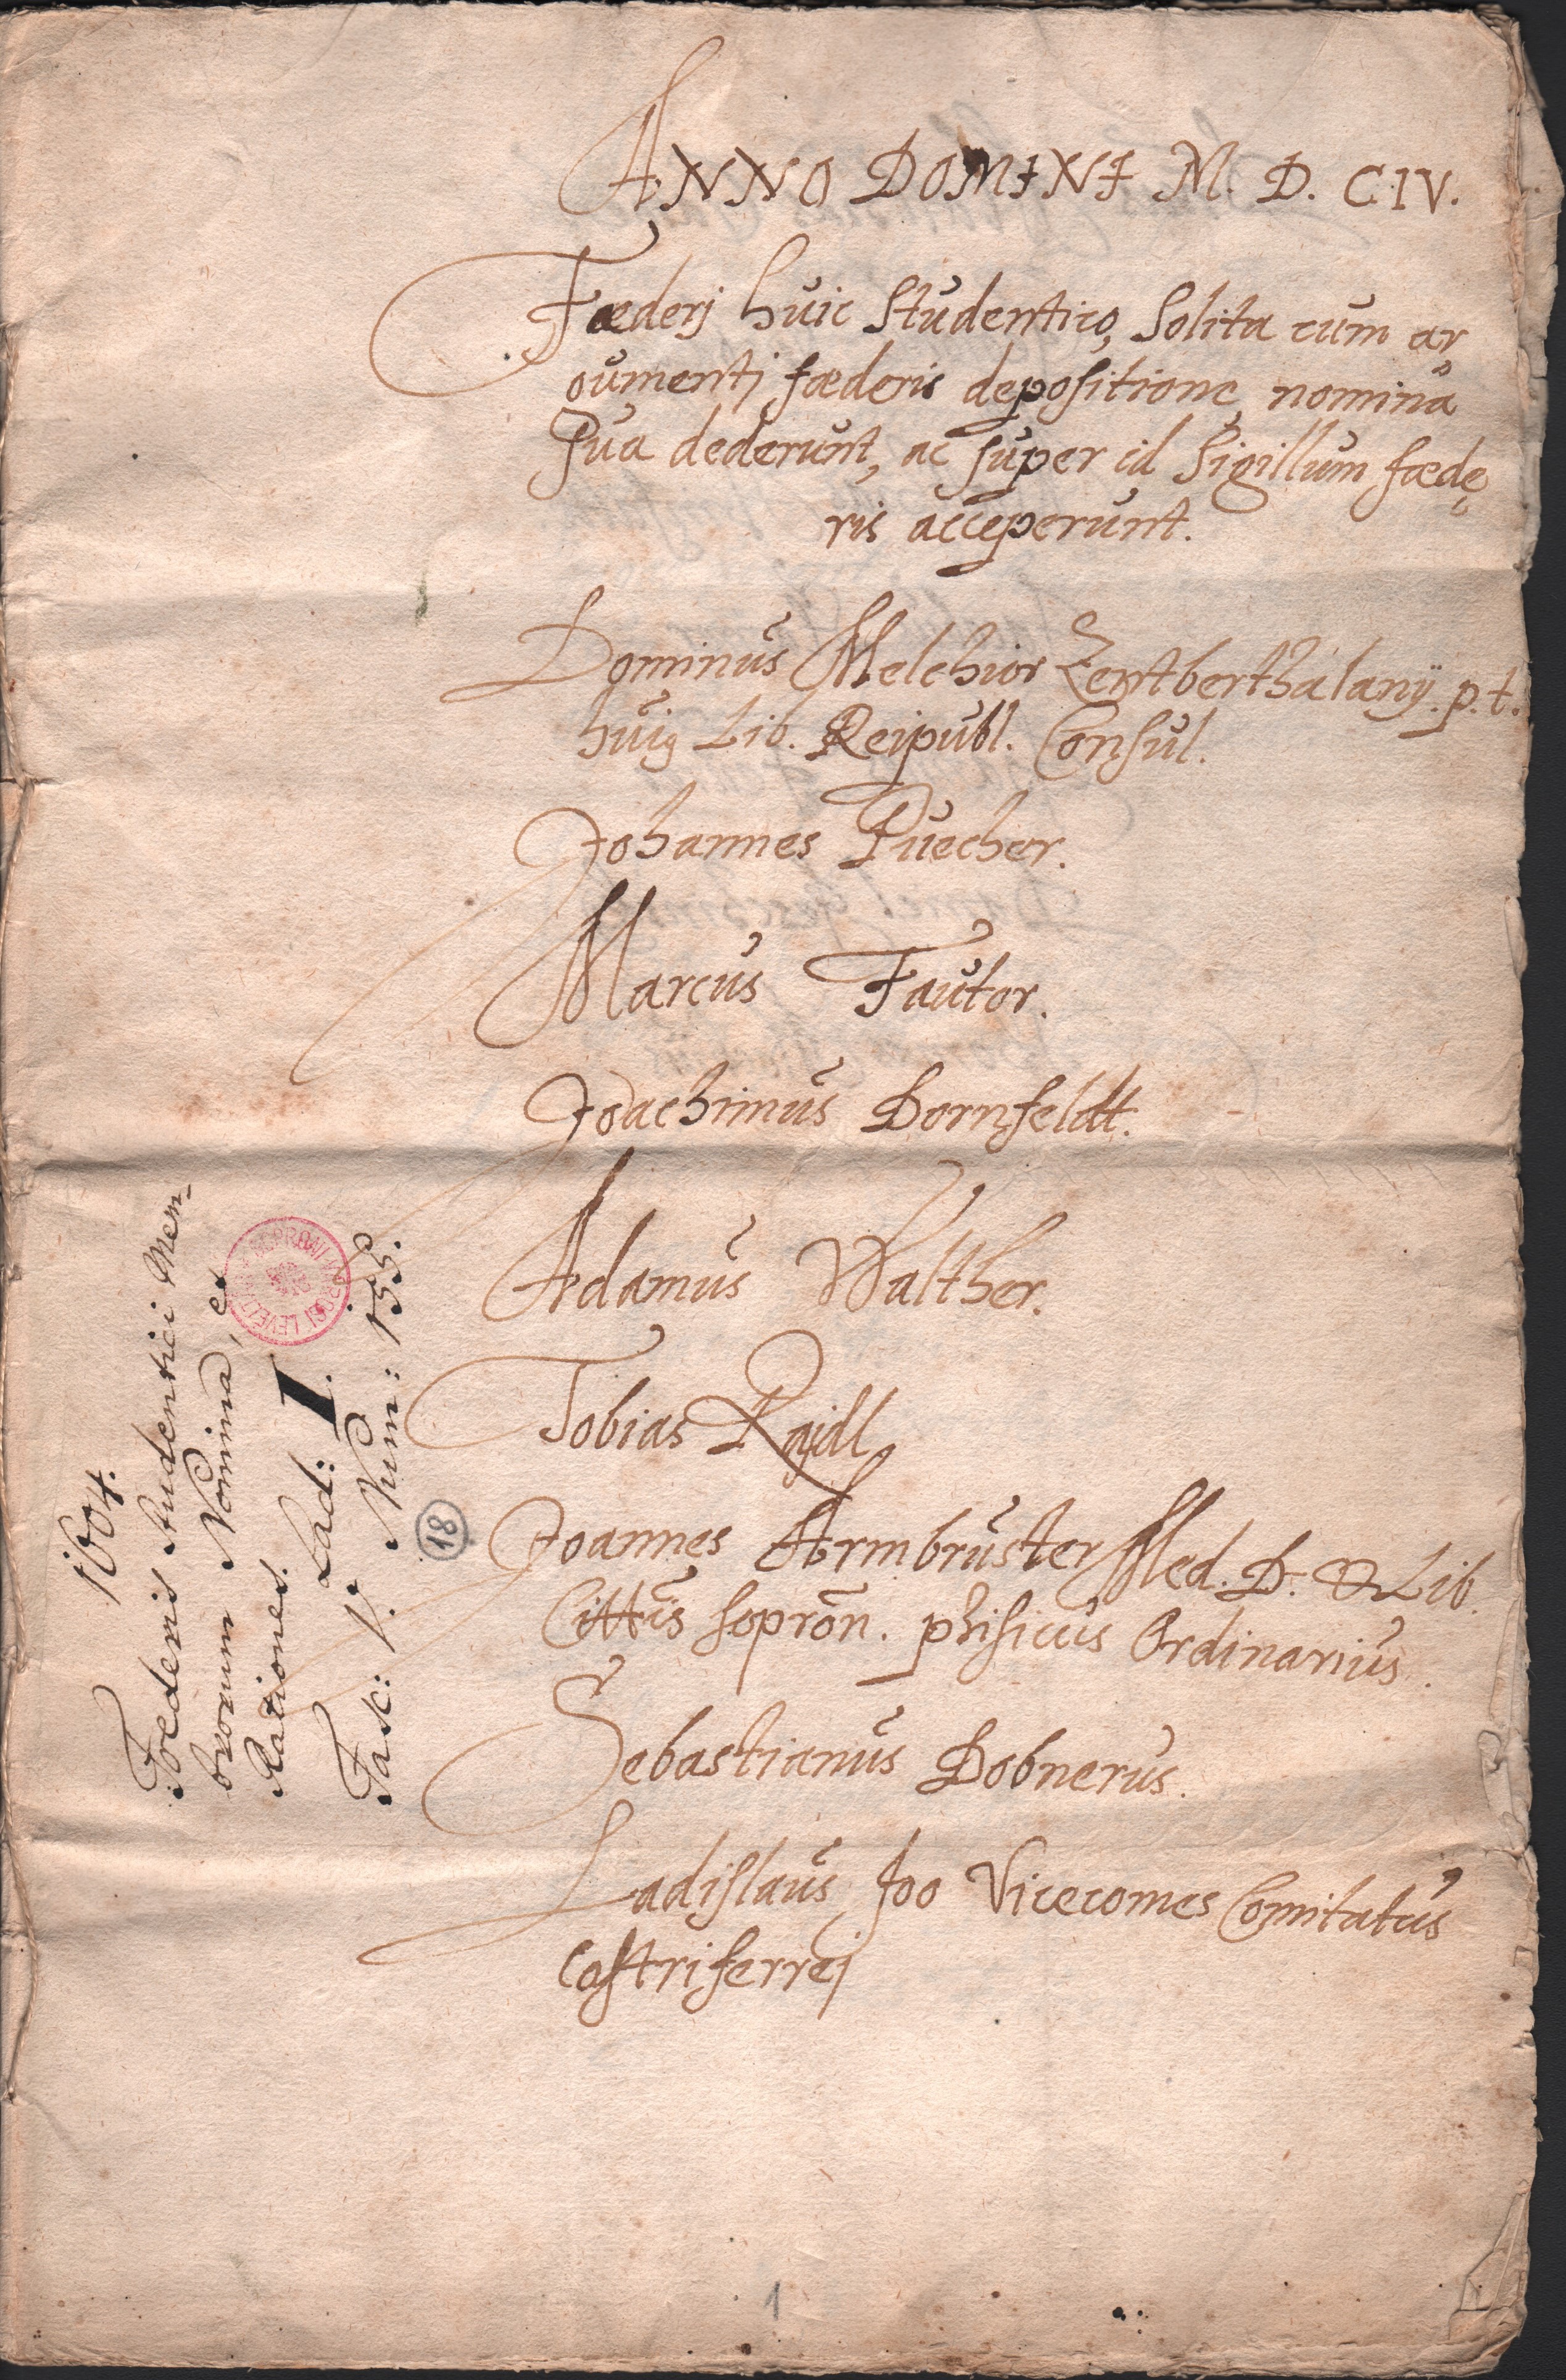 ANNO DOMINI M. D. CIV.
Fœderj huic Studentico, Solita cum ar
gumentj fœderis depositione nomina
Sua dederunt, ac super id Sigillum fœdę
ris acceperunt.
Dominus Melchior Zentberthàlanÿ. p. t.
huig Lib. Reipubl. Consul.
Johannes Puecher.
Marcus Fautor.
Joachimus Dornfeldt.
Adamus Walther.
Tobias Rajdl
Joannes Armbruster Med. D. & Lib.
Cittis Soprōn. phisicus Ordinarius.
Sebastianus Dobnerus.
Ladislaus Joo Vicecomes Comitatus
Castriferrej
1604.
Foederis Studentici Mem-
brorum Nomina, et
Rationes.
Lad: I.
Fasc: V. Num: 155.
SOPRONI VÁROSI LEVÉLTÁR
18
1